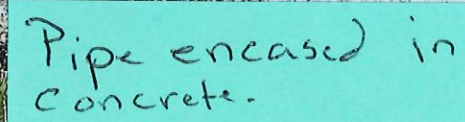 Pipe encased in
Concrete.